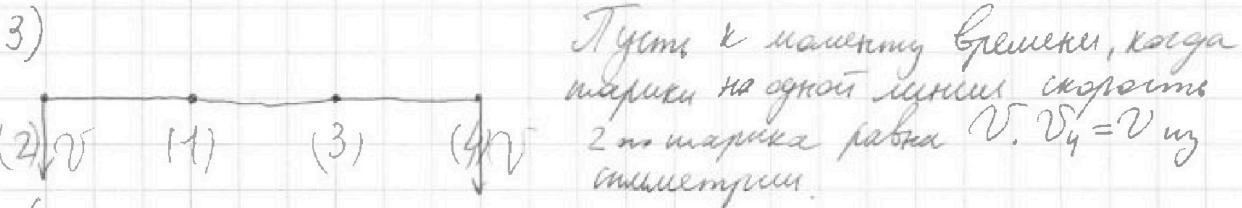 3)
Пусть к моменту времени, когда
шарики на одной линии скорость
2го шарика равна V. V₄ = V из
симметрии.
(2) V (1) (3) (4) V